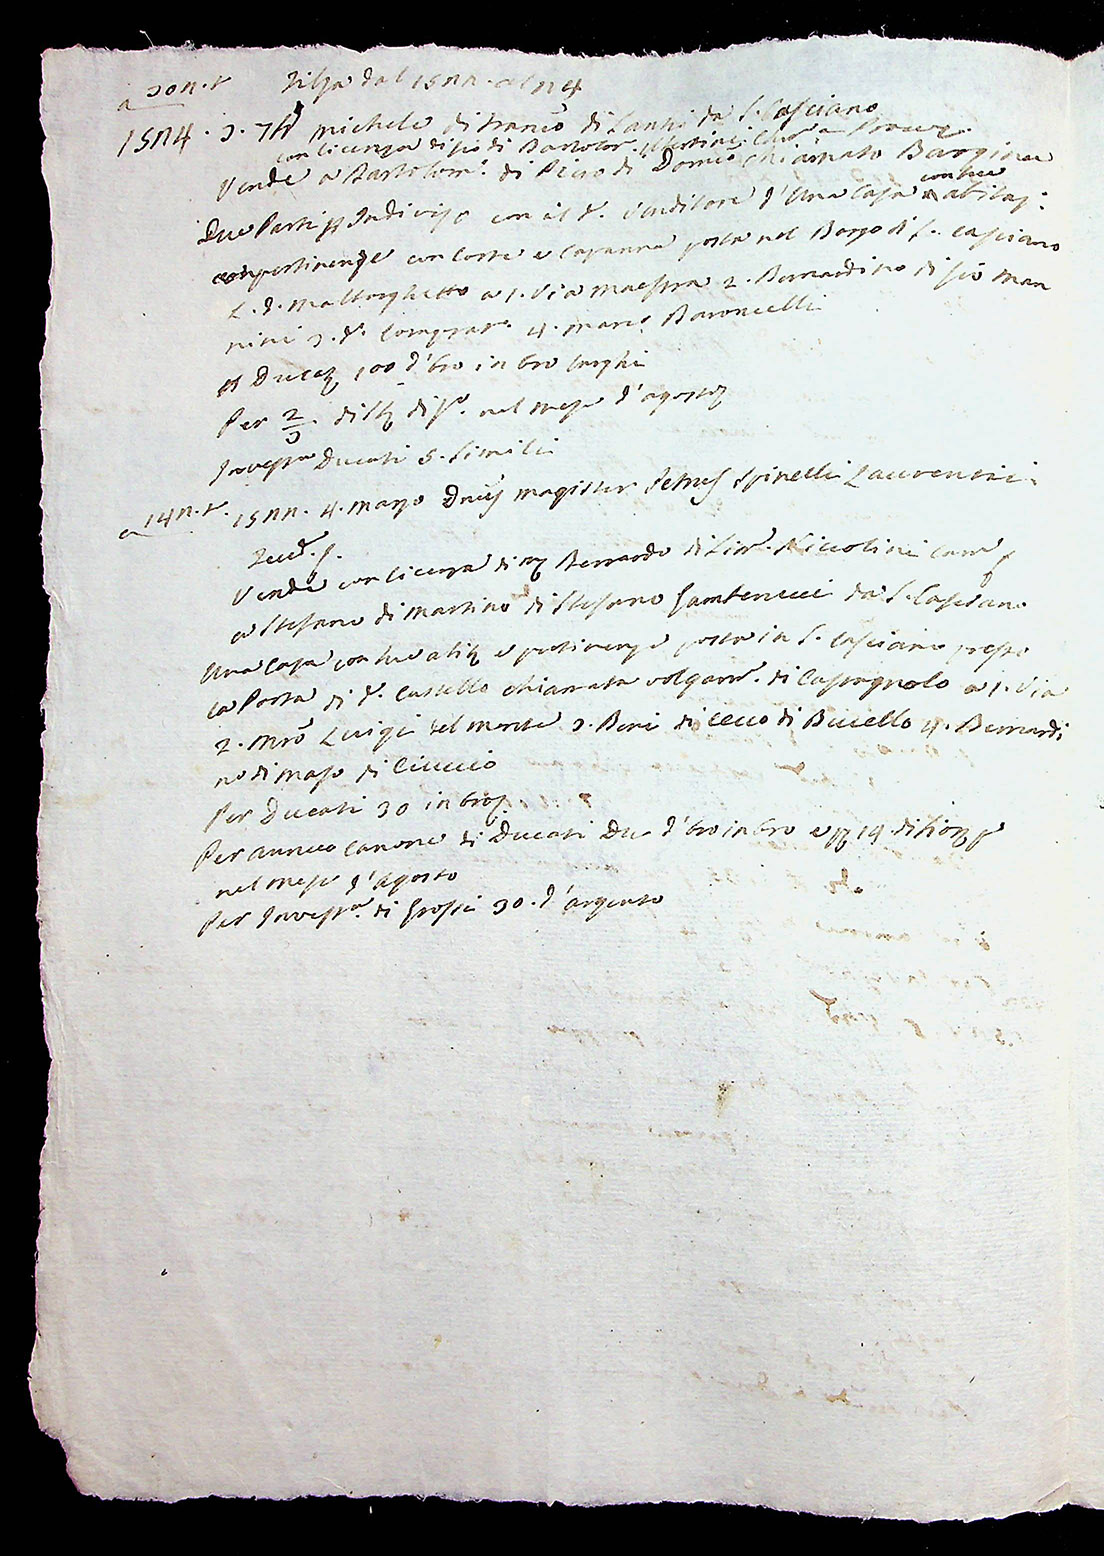 a 30n.t Filza dal 15nn. al n4
15n4. 3. 7bre Michele di Franco di Lanni da S. Casciano
con licenza di Gio di Bartolom. Martini Canco e Procuz.
Vende a Bartolomo. di Piero di Domco chiamato Bargino
Due Parti pr Indiviso con il do. Venditore d'Una Casa con sue abitaz:
e pertinenze con Corte e Capanna posta nel Borgo di S. Casciano
L. d. Malborghetto a 1. Via Maestra 2. Bernardino di Gio Man
nini 3. do. Comprare. 4. Mare. Baroncelli
pr Ducaz 100 d'Oro in Oro larghi
Per 2/3 di di nel mese d'agosto
Invessra Ducati 5. Simili
a 14n.t. 15nn. 4. Marzo Dnus Magister Petrus Spinelli Laurentini
Vende con licenza di Bernardo di Simo. Niccolini Canco
a Stefano di Martino di Stefano Gambenucci da S. Casciano
Una Casa con sue abitz e pertinenze posta in S. Casciano presso
la Porta di do. Castello chiamata volgarme. di Casragnolo a 1. Via
2. Mro Luigi del Monte 3. Beni di Cecco di Buccello 4. Bernardi
no di Maso di Ciuccio
Per Ducati 30 in Oro
Per annuo canone di Ducati Du d'Oro in Oro e 14 di
nel mese d'Agosto
Per Invessra. di Grossi 30. d'argento